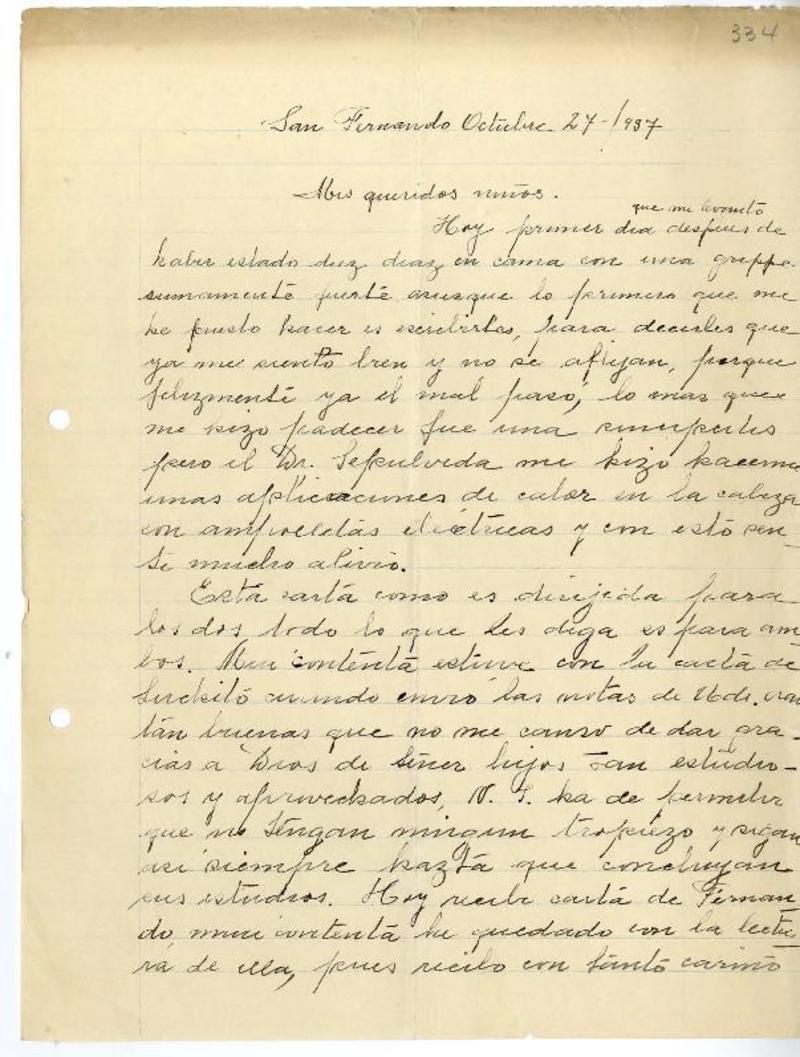 334
San Fernando Octubre 27-/937
Mis queridos niños.
que me levanto
Hoy primer dia despues de
haber estado diez diaz en cama con una grippe
sumamente fuerte asusque lo primero que me
he puesto hacer es escribirles, para decirles que
ya me siento bien y no se aflijan, porque
felizmente ya el mal pasó, lo mas que
me hizo padecer fue una
pero el Dr. Sepulveda me hizo hacerme
unas aplicaciones de calor en la cabeza
con ampolletas eléctricas y con esto sen_
ti mucho alivio.
Esta carta como es dirijida para
los dos todo lo que les diga es para am
bos. Mui contenta estuve con la carta de
Luchito cuando envió las notas de Uds. eran
tan buenas que no me canso de dar gra_
cias a Dios de tener hijos tan estudio-
sos y aprovechados, N. S. ha de permitir
que no tengan ningun tropiezo y sigan
asi siempre hazta que concluyan
sus estudios. Hoy recibi carta de Fernan_
do, mui contenta he quedado con la lectu_
ra de ella, pues recibo con tanto cariño